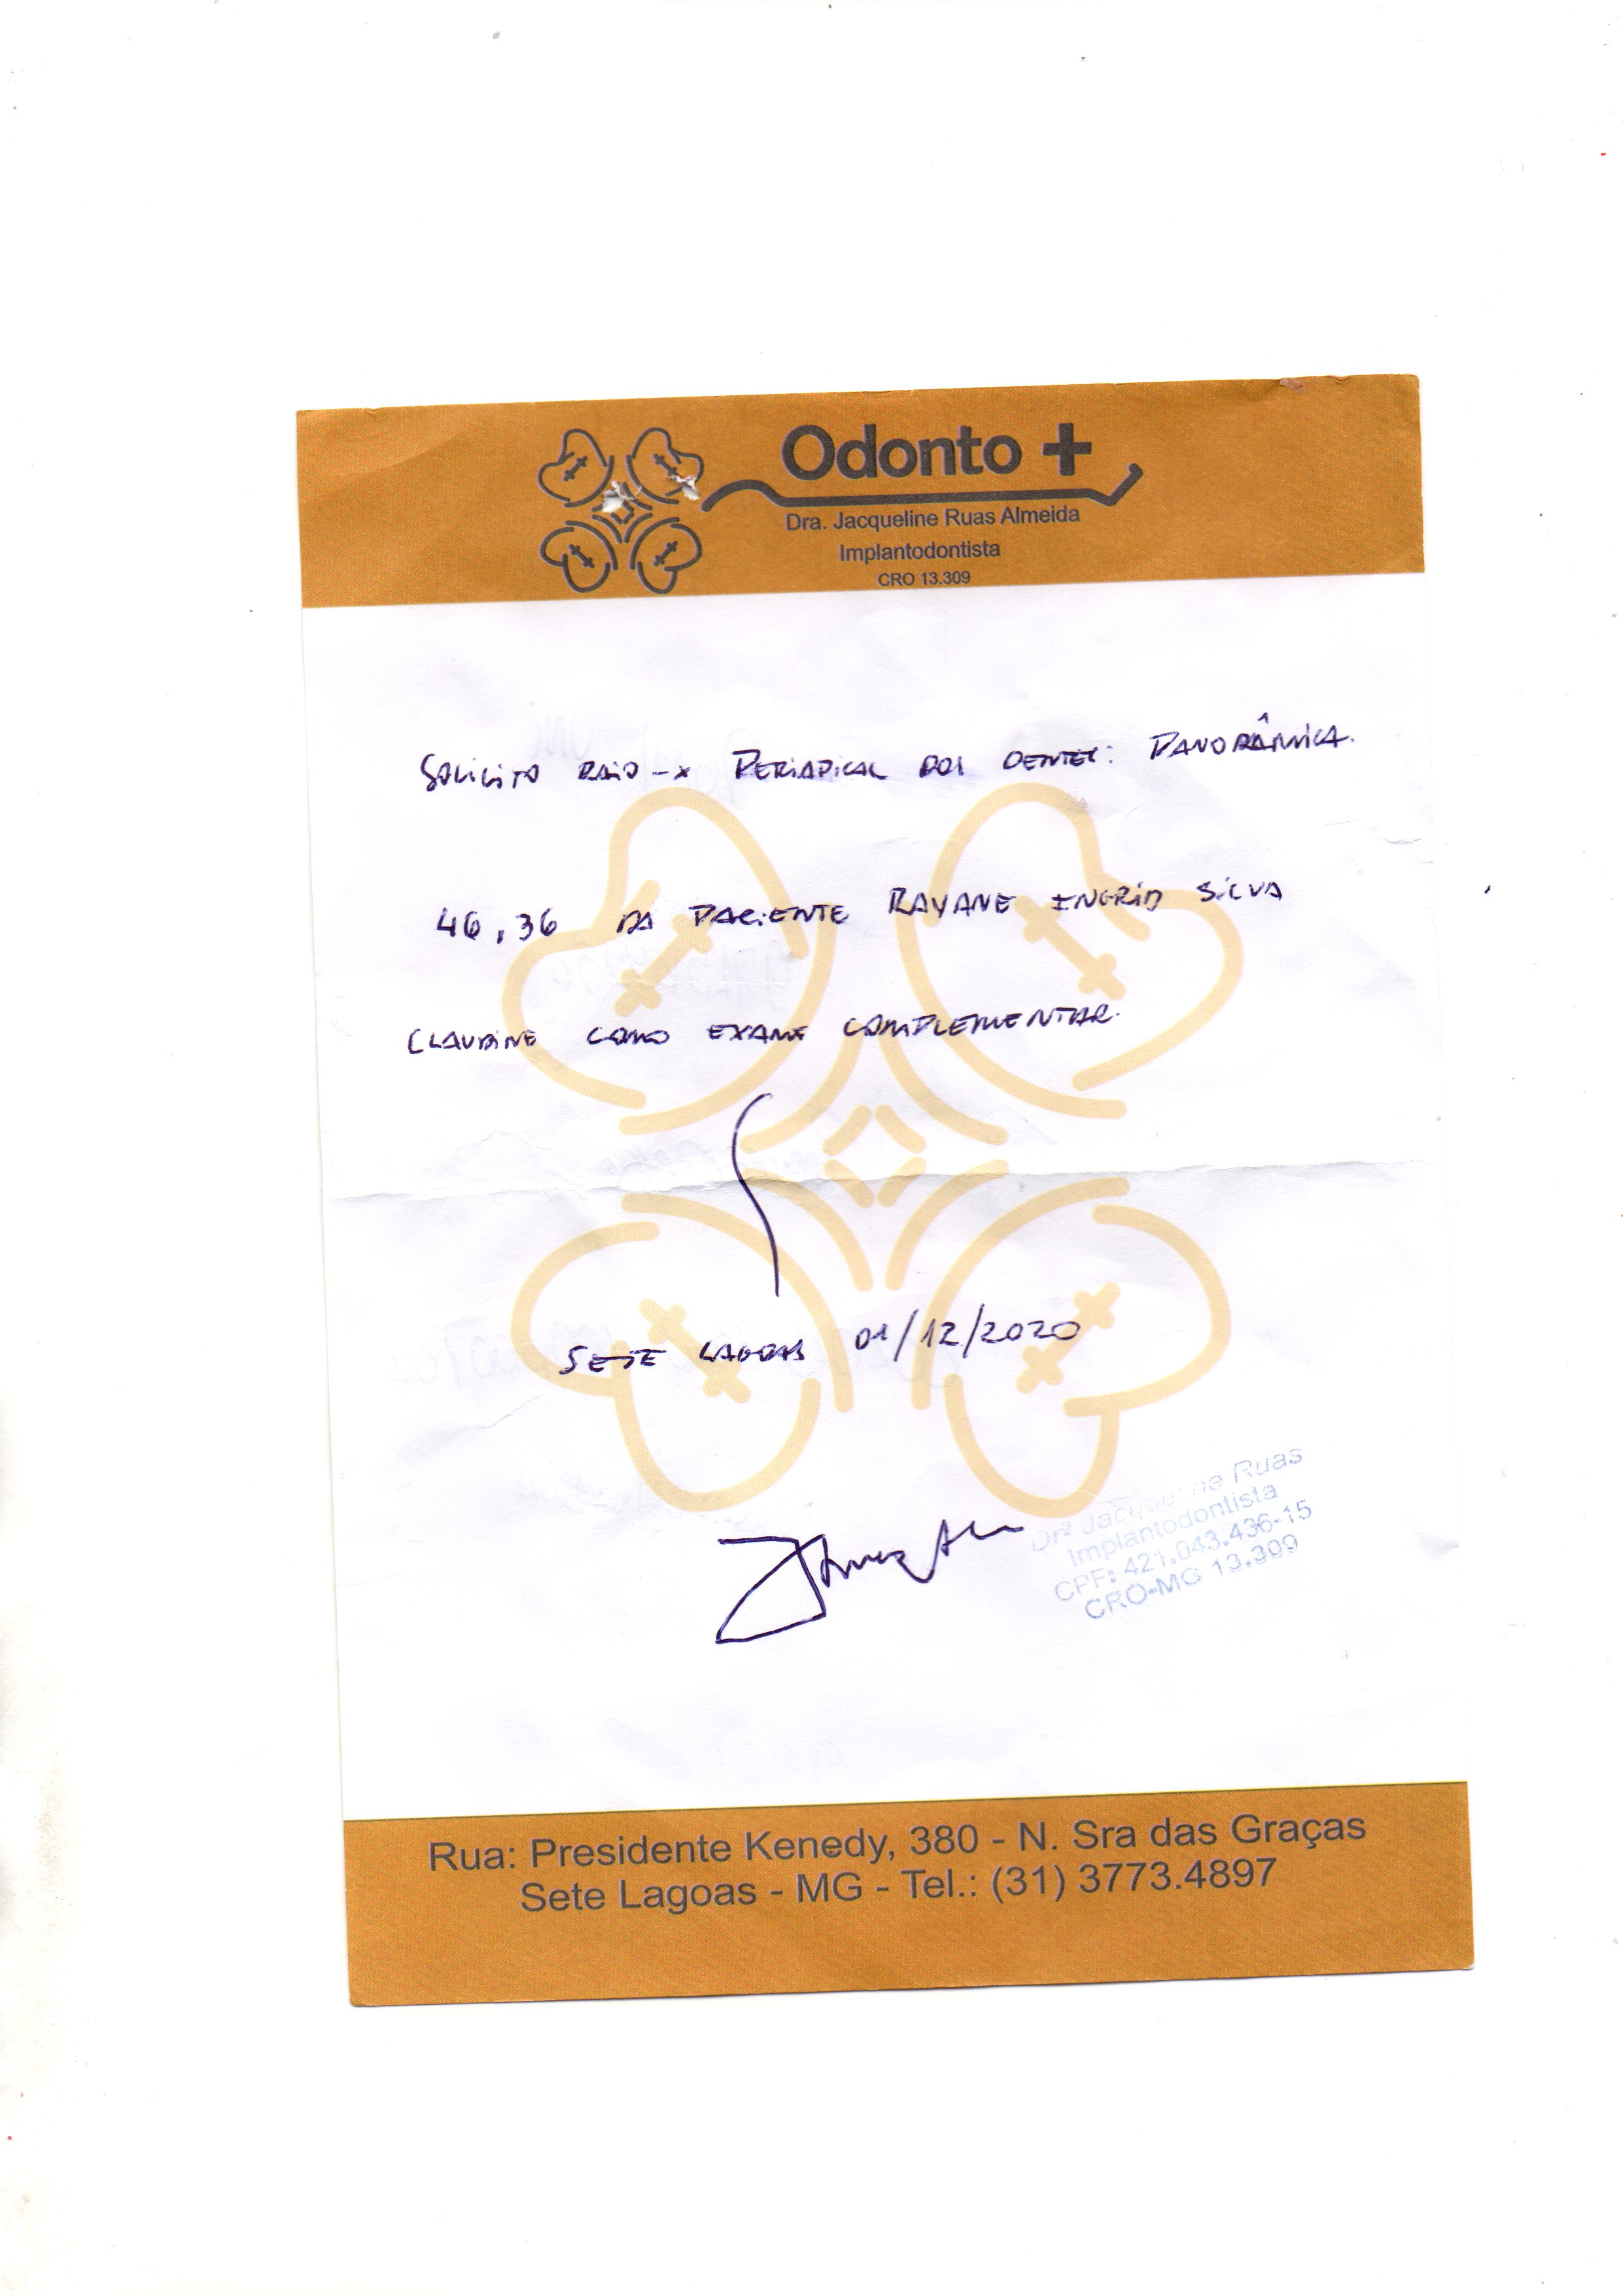 Odonto +
Dra. Jacqueline Ruas Almeida
Implantodontista
CRO 13.309
SOLICITO RAIO-X PERIAPICAL DOS DENTES: PANORÂMICA.
46, 36 DA PACIENTE RAYANE INGRID SILVA
CLAUDINE COMO EXAME COMPLEMENTAR.
SETE LAGOAS 01/12/2020
Drª Jacqueline Ruas
Implantodontista
CPF: 421.043.436-15
CRO-MG 13.309
Rua: Presidente Kenedy, 380 - N. Sra das Graças
Sete Lagoas - MG - Tel.: (31) 3773.4897